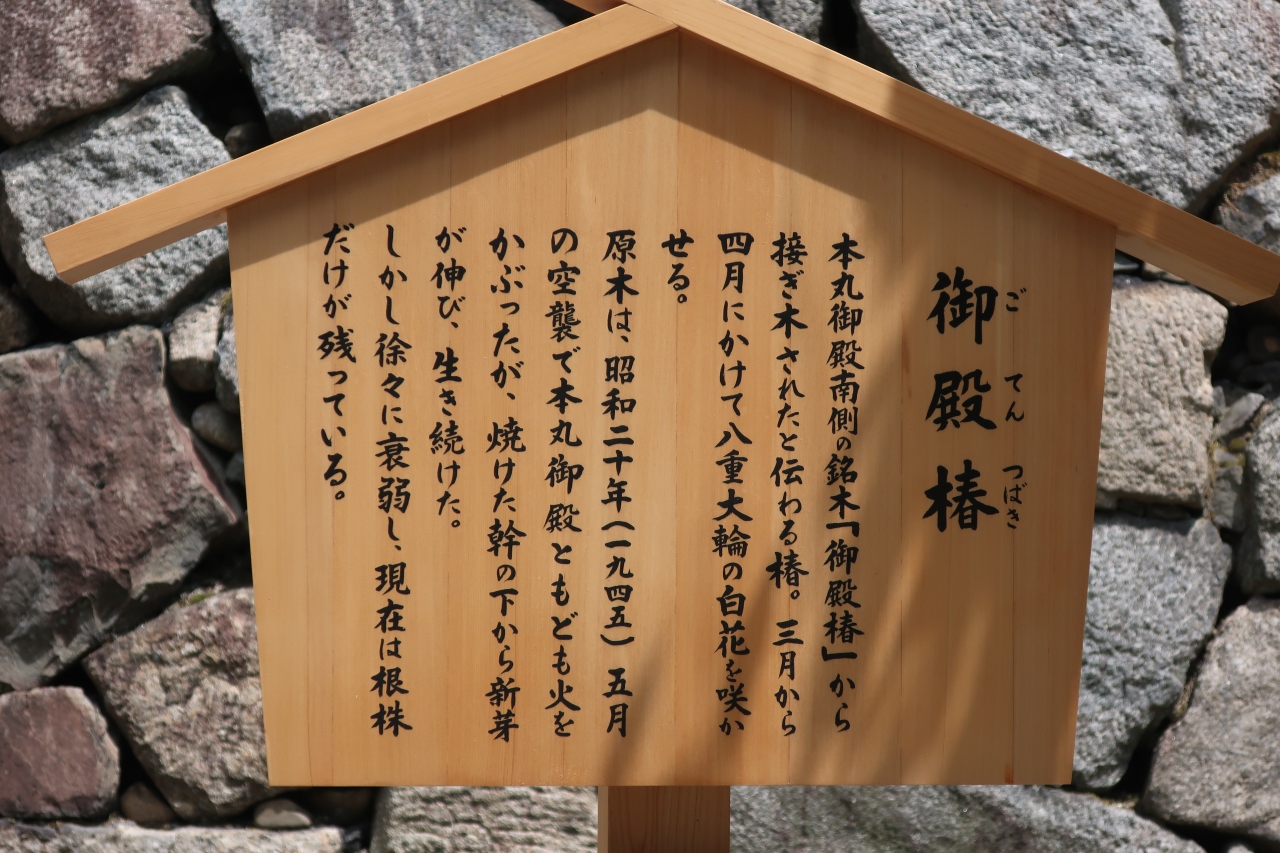 御殿椿
ごてんつばき
本丸御殿南側の銘木「御殿椿」から
接ぎ木されたと伝わる椿。三月から
四月にかけて八重大輪の白花を咲か
せる。
原木は、昭和二十年（一九四五）五月
の空襲で本丸御殿ともども火を
かぶったが、焼けた幹の下から新芽
が伸び、生き続けた。
しかし徐々に衰弱し、現在は根株
だけが残っている。